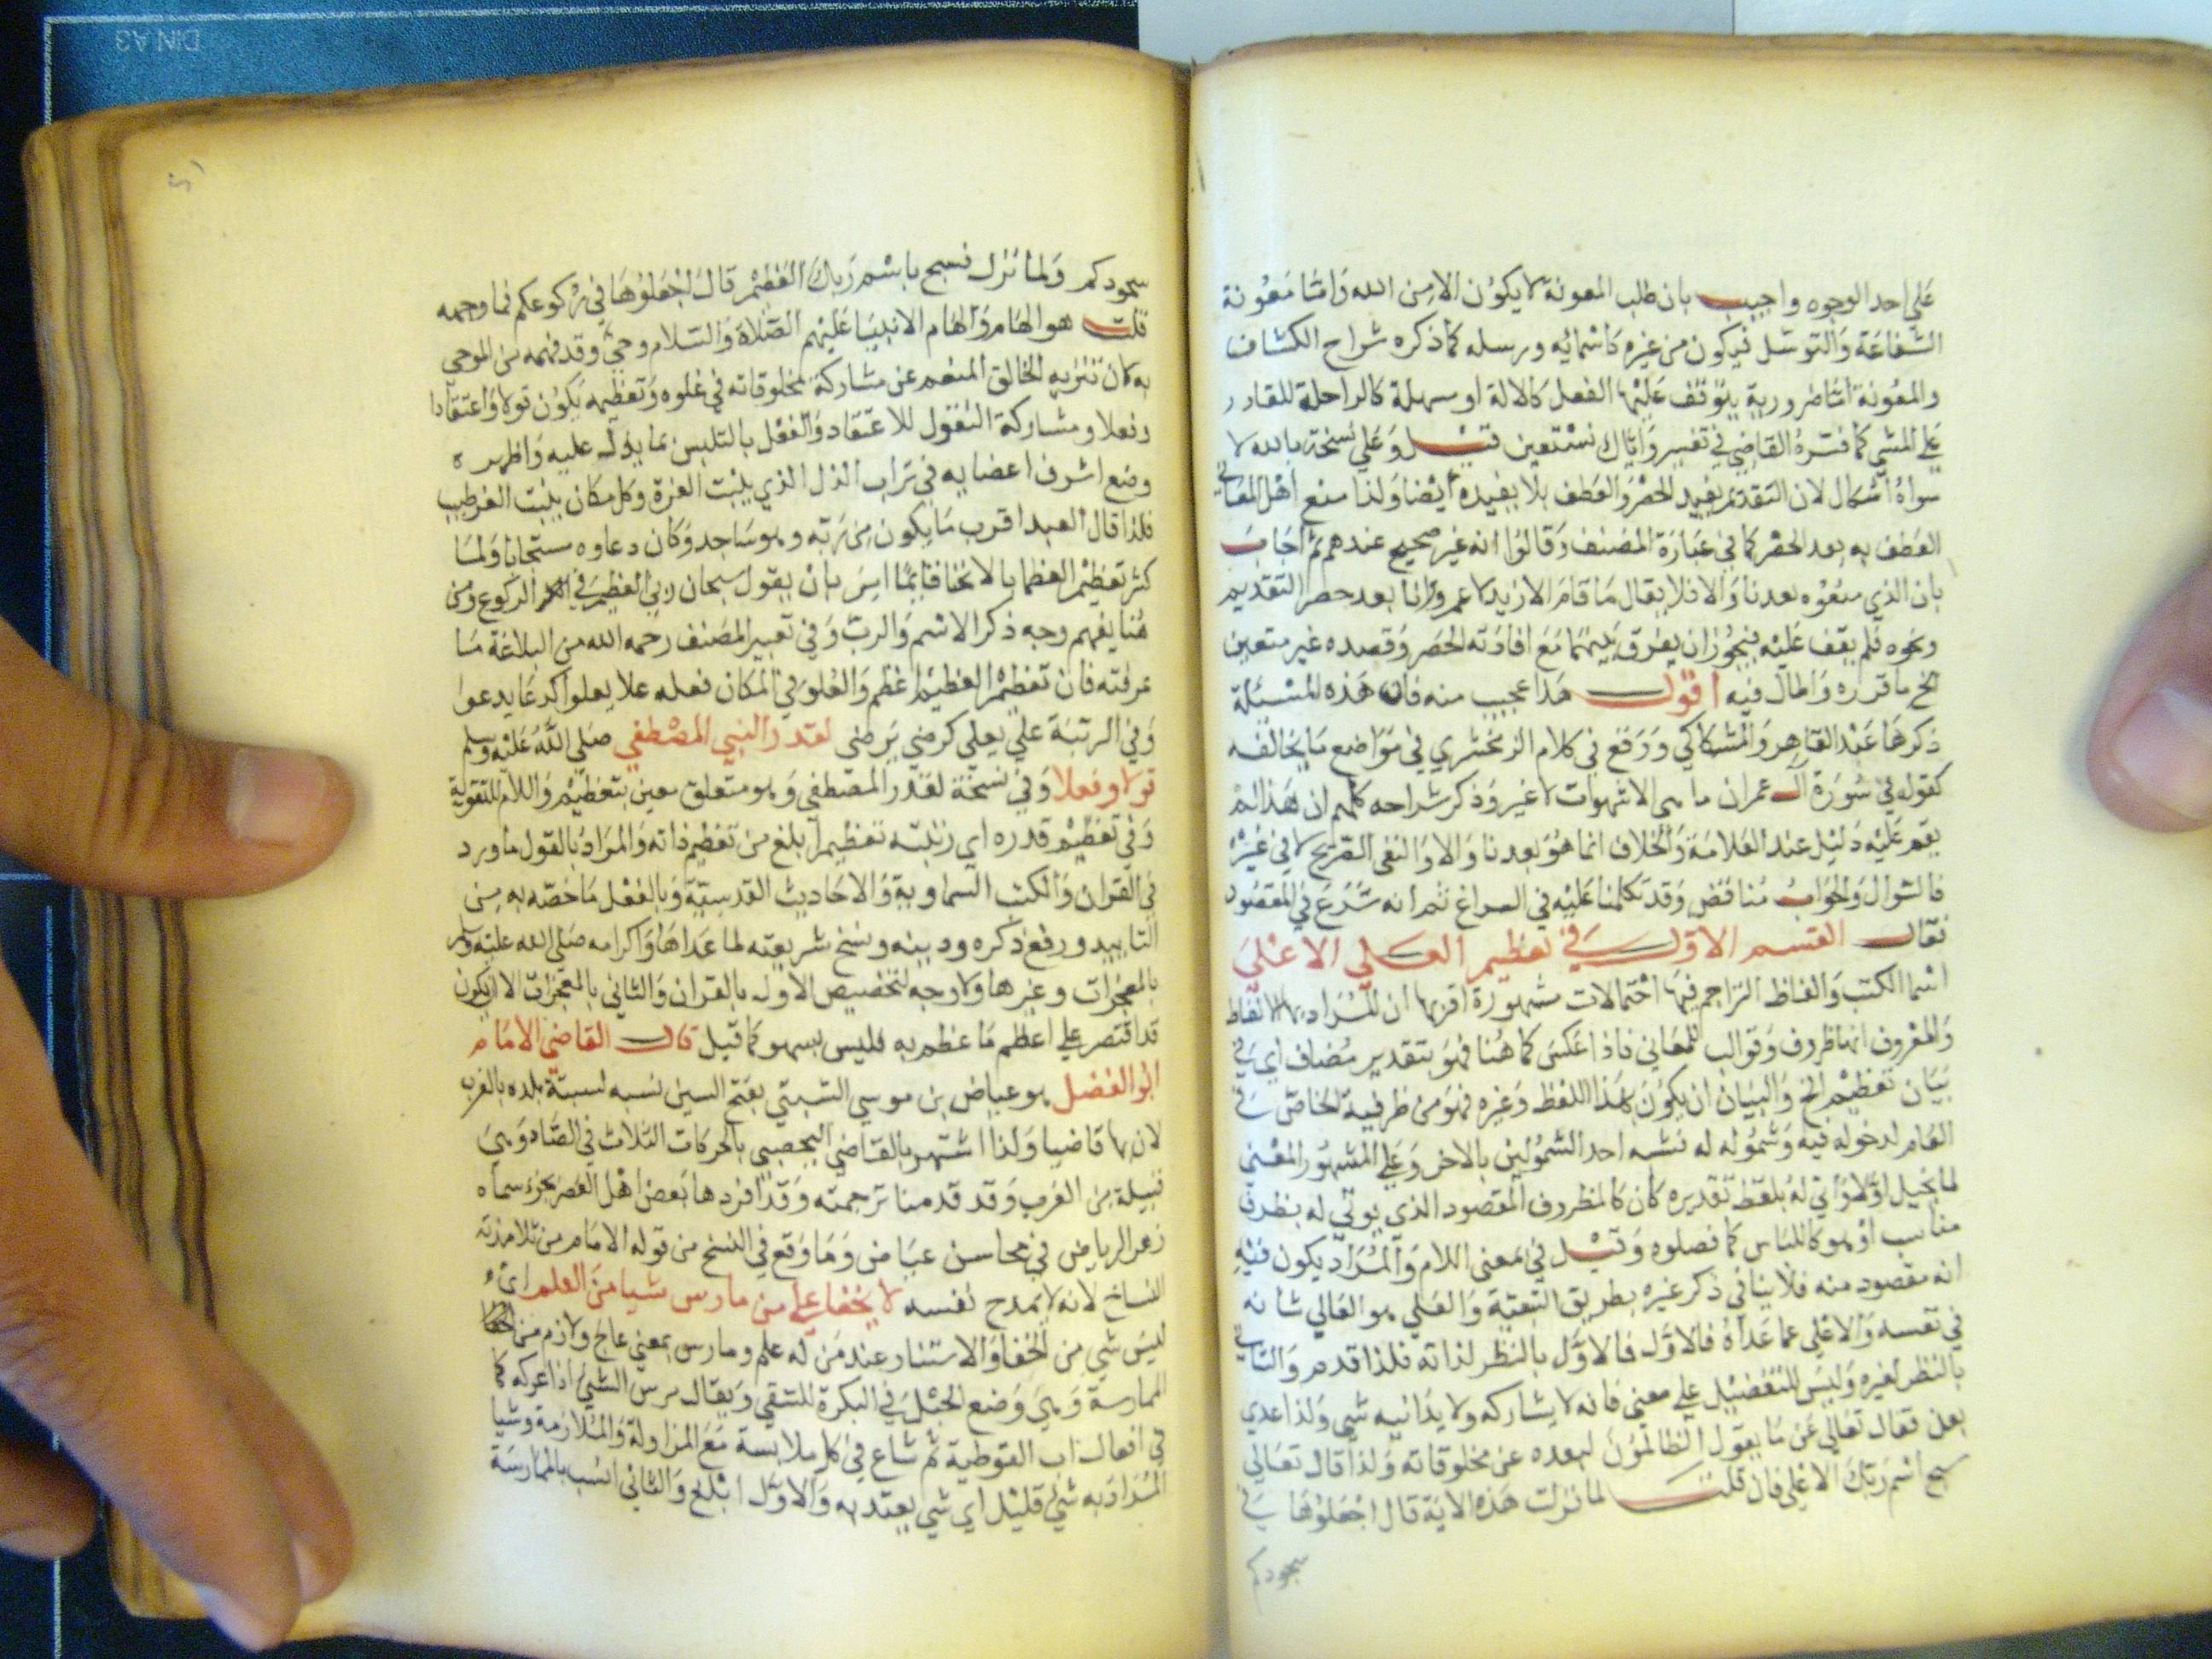 علي احد الوجوه واجيب بان طلب المعونة لا يكون الا من الله واما معونة
الشفاعة والتوسل فيكون من غيره كاسمائه ورسله كما ذكره شراح الكشاف
والمعونة اما ضرورية يتوقف عليها الفعل كالالة او سهلة كالراحلة للقادر
علي المشي كما فسره القاضي في تفسير واياك نستعين قيل وعلي نسخة بالله لا
سواه اشكال لان التقديم يفيد الحصر والعطف بلا يفيده ايضا ولذا منع اهل المعاني
العطف به بعد الحصر كما في عبارة المصنف وقالوا انه غير صحيح عندهم ثم اجاب
بان الذي منعوه بعد نا والا فلا يقال ما قام الا زيد لا عمرو وانا بعد حصر التقديم
ونحوه فلم يقف عليه فيجوز ان يفرق بينهما مع افادته الحصر وقصده غير متعين
الخ ما قرره واطال فيه اقول هذا عجيب منه فان هذه المسئلة
ذكرها عبد القاهر والسكاكي ووقع في كلام الزمخشري في مواضع ما يخالفه
كقوله في سورة ال عمران ما هي الا شهوات لا غير وذكر شراحه كلهم ان هذا لم
يقم عليه دليل عند العلامة والخلاف انما هو بعد نا والا والنفي الصريح لا في غيره
فالسؤال والجواب مناقض وقد تكلمنا عليه في السراغ ثم انه شرع في المقصود
فقال القسم الاول في تعظيم العلي الاعلي
اسما الكتب والفاظ التراجم فيها احتمالات مشهورة اقربها ان المراد بها الالفاظ
والمعروف انها ظروف وقوالب للمعاني فاذا عكس كما هنا فهو بتقدير مضاف اي في
بيان تعظيم الخ والبيان ان يكون بهذا اللفظ وغيره فهو من ظرفية الخاص في
العام لدخوله فيه وشموله له فشبه احد الشمولين بالاخر وعلي المشهور المعني
لما تخيل اولا واتي له بلفظ تقديره كان كالمظروف المقصود الذي يوتي له بظرف
مناسب او هو كاللباس كما فصلوه وقيل في بمعني اللام والمراد يكون فيه
انه مقصود منه فلا ينافي ذكر غيره بطريق التبعية والعلي هو العالي شانه
في نفسه والاعلي عما عداه فالاول فالاول بالنظر لذاته فلذا قدم والثاني
بالنظر لغيره وليس للتفضيل علي معني فانه لا يشاركه ولا يدانيه شي ولذا عدي
بعن فقال تعالي عن ما يقول الظالمون لبعده عن مخلوقاته ولذا قال تعالي
سبح اسم ربك الاعلي فان قلت لما نزلت هذه الاية قال اجعلوها في
سجودكم
سجودكم ولما نزل فسبح باسم ربك العظيم قال اجعلوها في ركوعكم فما وجهه
قلت هو الهام والهام الانبيا عليهم الصلاة والسلام وحي وقد فهمه من الموحي
به كان تنزيه الخالق المنعم عن مشاركة مخلوقاته في علوه وتعظيمه يكون قولا واعتقادا
وفعلا ومشاركة القول للاعتقاد والفعل بالتلبس بما يدل عليه واظهره
وضع اشرف اعضايه في تراب الذل الذي ينبت العزة وكل مكان ينبت العز طيب
فلذا قال العبد اقرب ما يكون من ربه وهو ساجد وكان دعاوه مستجابا ولما
كثر تعظيم العظما بالانحنا قائما امر بان يقول سبحان ربي العظيم في الركوع ومن
هنا يفهم وجه ذكر الاسم والرب وفي تعبير المصنف رحمه الله من البلاغة ما
عرفته فان تعظيم العظيم اعظم والعلو في المكان فعله علا يعلو كدعا يدعوا
وفي الرتبة علي يعلي كرضي يرضي لقدر النبي المصطفي صلي الله عليه وسلم
قولا وفعلا وفي نسخة لقدر المصطفي وهو متعلق بتعظيم واللام للتقوية
وفي تعظيم قدره اي رتبته تعظيم ابلغ من تعظيم ذاته والمراد بالقول ما ورد
في القران والكتب السماوية والاحاديث القدسية وبالفعل ما خصه به من
التاييد ورفع ذكره ودينه ونسخ شريعته لما عداها واكرامه صلي الله عليه وسلم
بالمعجزات وغيرها ولا وجه لتخصيص الاول بالقران والثاني بالمعجزات الا ان يكون
قد اقتصر علي اعظم ما عظم به فليس بسهو كما قيل قال القاضي الامام
ابو الفضل هو عياض بن موسي السبتي بفتح السين نسبه لسبتة بلده بالغرب
لان بها قاضيا ولذا اشتهر بالقاضي اليحصبي بالحركات الثلاث في الصاد وهي
قبيلة من الغرب وقد قدمنا ترجمته وقد افردها بعض اهل العصر بجزء سماه
زهر الرياض في محاسن عياض وما وقع في النسخ من قوله الامام من تلامذته
النساخ لانه لا يمدح نفسه لا يخفا علي من مارس شيا من العلم اي
ليس شي من الخفا والاستتار عند من له علم ومارس بمعني عالج ولازم من
الممارسة وهي وضع الحبل في البكرة للسقي ويقال مرس الشي اذا عركه كما
في افعال ابن القوطية ثم شاع في كل ملابسة مع المزاولة والملازمة وشيا
المراد به شي قليل اي شي يعتد به والاول ابلغ والثاني انسب بالممارسة
DIN A3